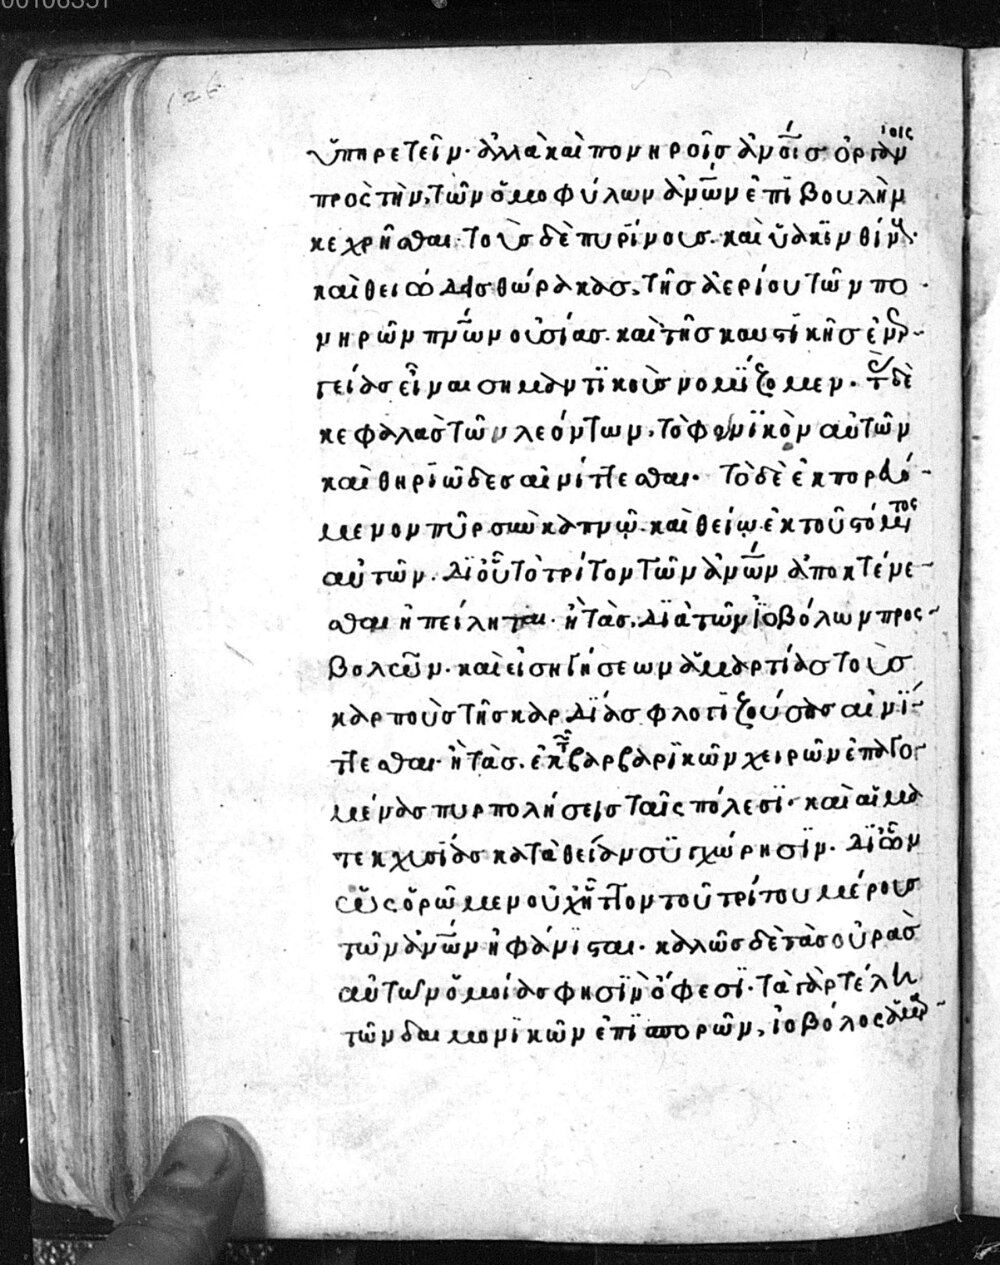 126
ὑπηρετεῖν· ἀλλὰ καὶ πονηροῖς ἀν́οῖς ὁρίοις
πρὸς τὴν, τῶν ὁμοφύλων ἀν́ων ἐπιβουλὴν
κεχρῆσθαι· τοὺς δὲ πυρίνους. καὶ ὑακινθίν
καὶ θειώδεις θώρακας, τῆς ἀερίου τῶν πο
νηρῶν πν́ων οὐσίας. καὶ τῆς καυστικῆς ἐνερ
γείας εἶναι σημαντικοὺς νομίζομεν. τ δὲ
κεφαλὰς τῶν λεόντων, τὸ φονικὸν αὐτῶν
καὶ θηριῶδες αἰνίττεσθαι· τὸ δὲ ἐκπορευό
μενον πῦρ σὺν καπνῷ. καὶ θείῳ ἐκ τοῦ στόματος
αὐτῶν. δι οὗ τὸ τρίτον τῶν ἀν́ων ἀποκτένε
σθαι ἠπείληται· ἢ τὰς, διὰ τῶν ἰοβόλων προς
βολῶν. καὶ εἰσηγήσεων ἁμαρτίας τοὺς
καρποὺς τῆς καρδίας φλογιζούσας αἰνί
ττεσθαι· ἢ τὰς. ἐκ τ βαρβαρικῶν χειρῶν ἐπαγο
μένας πυρπολήσεις ταῖς πόλεσι· καὶ αἵμα
τεκχυσίας κατὰ θείαν συγχώρησιν. δι ὧν
ὡς ὁρῶμεν οὐχ ἧττον τοῦ τρίτου μέρους
τῶν ἀν́ων ἠφάνισται· καλῶς δὲ τὰς οὐρὰς
αὐτῶν ὁμοίας φησὶν ὄφεσι· τὰ γὰρ τέλη
τῶν δαιμονικῶν ἐπισπορῶν, ἰοβόλος ἁμαρ